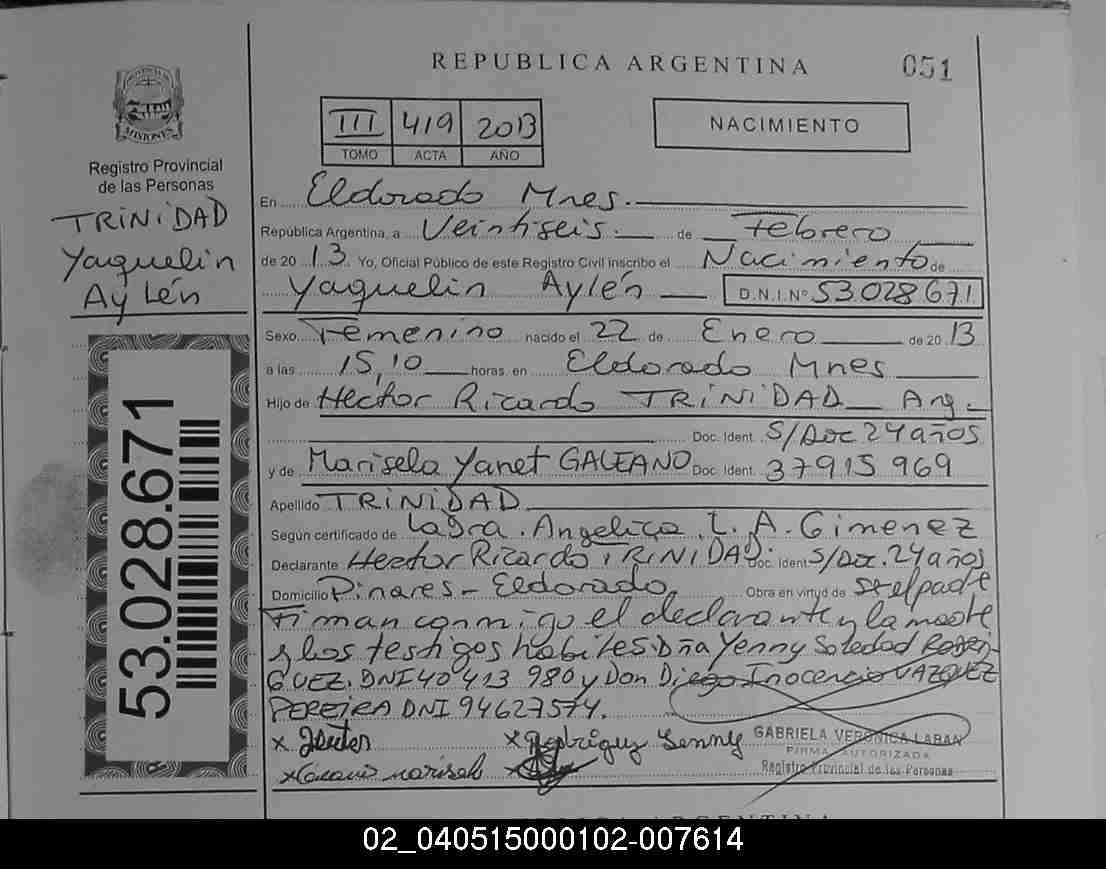 REPUBLICA ARGENTINA
051
PROVINCIA DE MISIONES
Registro Provincial
de las Personas
TRINIDAD
Yaquelin
Aylén
53.028.671
III 419 2013
TOMO ACTA AÑO
NACIMIENTO
En Eldorado Mnes.
República Argentina, a Veintiseis. de Febrero
de 2013. Yo, Oficial Público de este Registro Civil inscribo el Nacimiento de
Yaquelin Aylén D.N.I.Nº 53.028.671
Sexo Femenino nacido el 22 de Enero de 2013
a las 15,10 horas. en Eldorado Mnes
Hijo de Hector Ricardo TRINIDAD Arg.
Doc. Ident. S/Doc 24 años
y de Marisela Yanet GALEANO Doc. Ident. 37915969
Apellido TRINIDAD
Según certificado de La Dra. Angelica L. A. Gimenez
Declarante Hector Ricardo TRINIDAD. Doc. Ident. S/Doc. 24 años
Domicilio Pinares - Eldorado Obra en virtud de
Firman conmigo el declarante y la madre
y los testigos habiles: Dña Yenny Soledad RODRI-
GUEZ. DNI 40413980 y Don Diego Inocencio VAZQUEZ
PEREIRA DNI 94627574.
x Hector x Rodriguez Yenny
GABRIELA VERONICA LABAN
FIRMA AUTORIZADA
Registro Provincial de las Personas
x marisel x
ARGENTINA
02_040515000102-007614